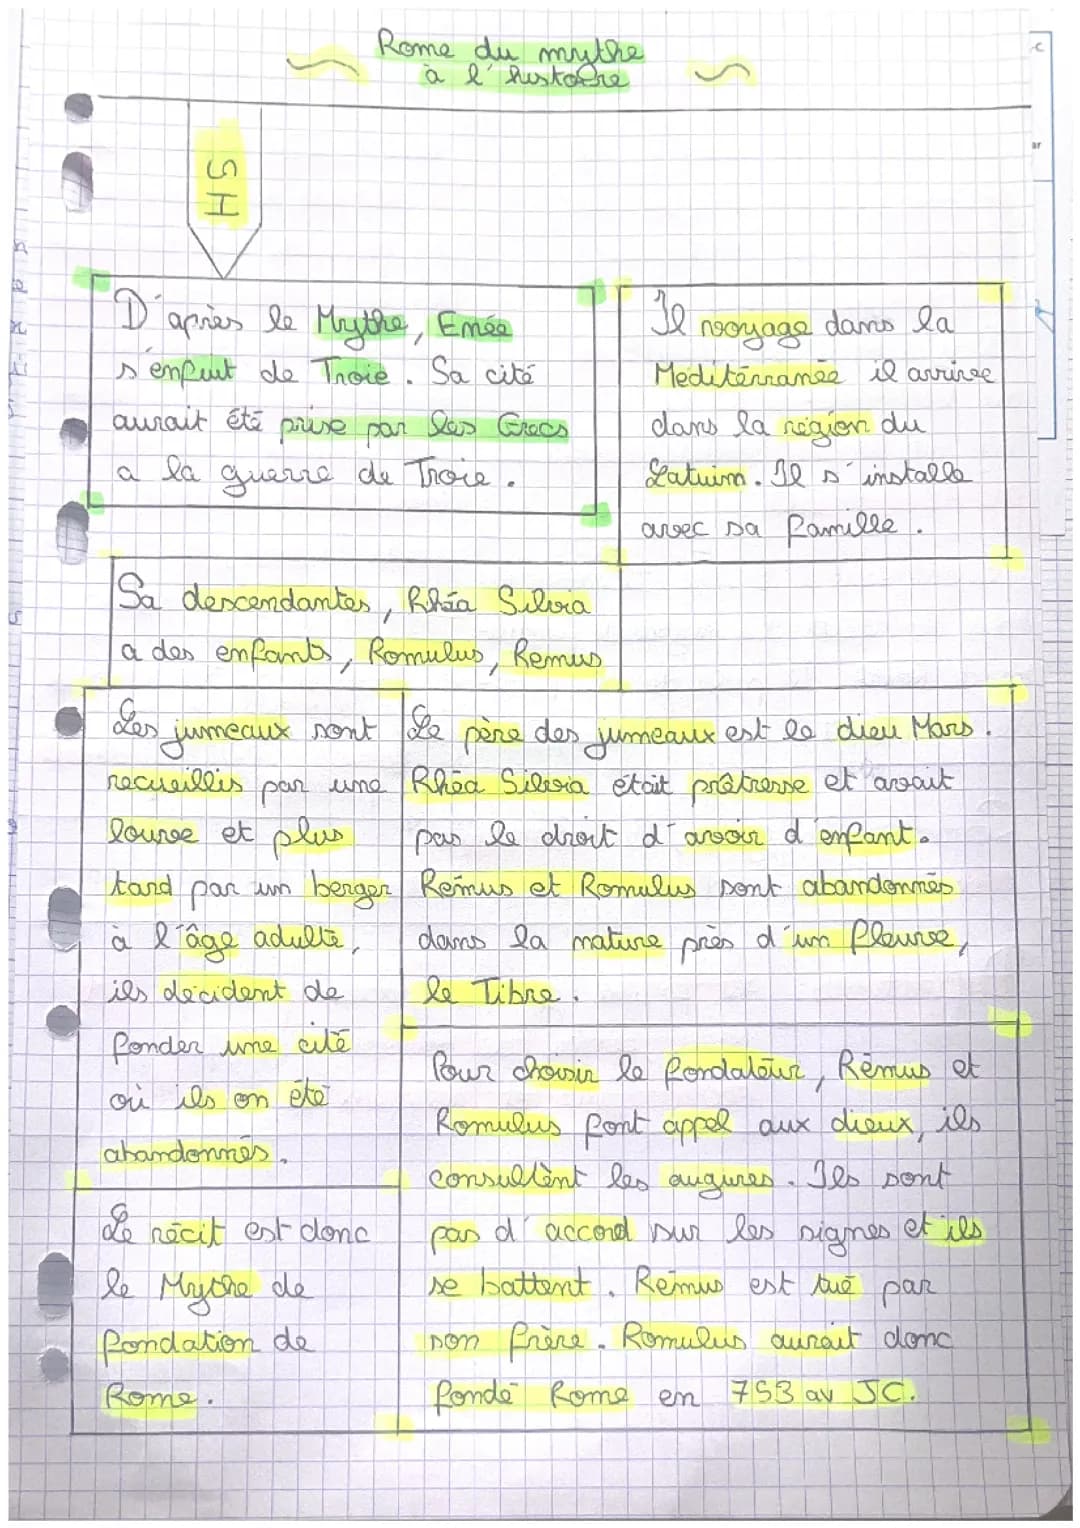 Rome du mythe
à l'histoire
SH
D'après le Mythe, Enée
s'enfuit de Troie. Sa cité
aurait été prise par les Grecs
a la guerre de Troie.
Il voyage dans la
Mediterranée il arrive
dans la région du
Latuim. Il s'installe
avec sa famille.
Sa descendantes, Rhéa Silvia
a des enfants, Romulus, Remus
Les jumeaux sont
recueillis par une
louve et plus
tard par un berger
à l'âge adulte,
ils décident de
fonder une cité
où ils on été
abandonnés.
Le père des jumeaux est le dieu Mars.
Rhéa Silvia était prêtresse et avait
pas le droit d'avoir d'enfant.
Rémus et Romulus sont abandonnés
dans la nature près d'un fleuve,
le Tibre.
Pour choisir le fondateur, Rémus et
Romulus font appel aux dieux, ils
consultent les augures. Ils sont
pas d'accord sur les signes et ils
se battent. Rémus est tué par
son frère. Romulus aurait donc
fondé Rome en 753 av JC.
Le récit est donc
le Mythe de
fondation de
Rome.